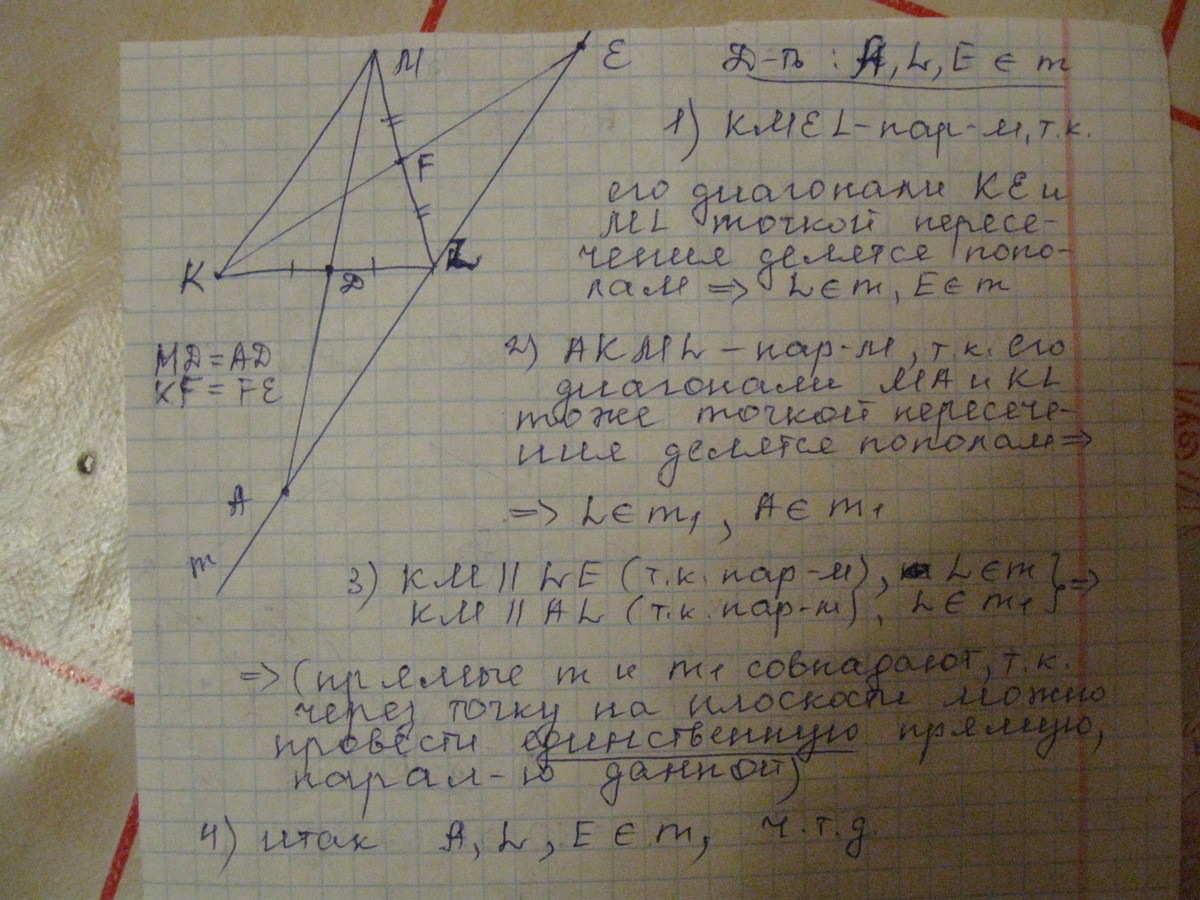 M
E
F
K
D
L
MD = AD
KF = FE
A
m
Д-ть : A, L, E ∈ m
1) KMEL - пар-м, т.к.
его диагонали KE и
ML точкой пересе-
чения делятся попо-
лам => L ∈ m, E ∈ m
2) AKML - пар-м, т.к. его
диагонали MA и KL
тоже точкой пересече-
ния делятся пополам =>
=> L ∈ m₁, A ∈ m₁
3) KM || LE (т.к. пар-м), L ∈ m } =>
KM || AL (т.к. пар-м), L ∈ m₁ }
=> (прямые m и m₁ совпадают, т.к.
через точку на плоскости можно
провести единственную прямую,
парал-ю данной)
4) итак A, L, E ∈ m, ч.т.д.